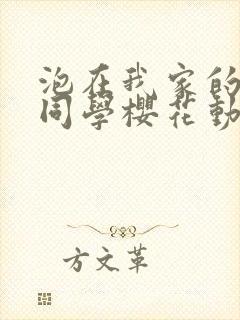 泡在我家的
同學櫻花動
方文革